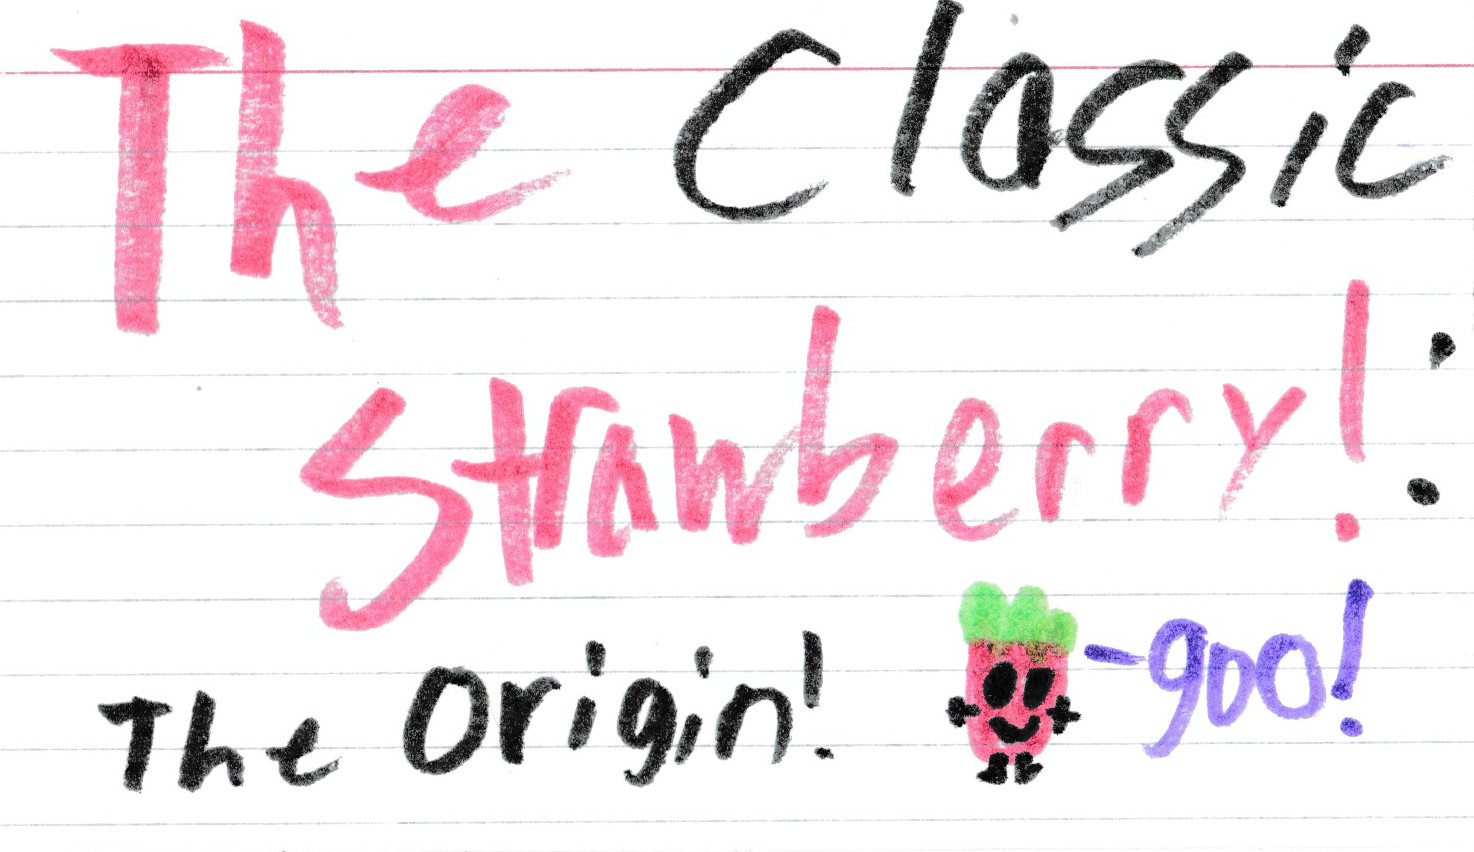 The Classic
Strawberry!:
The Origin! -goo!